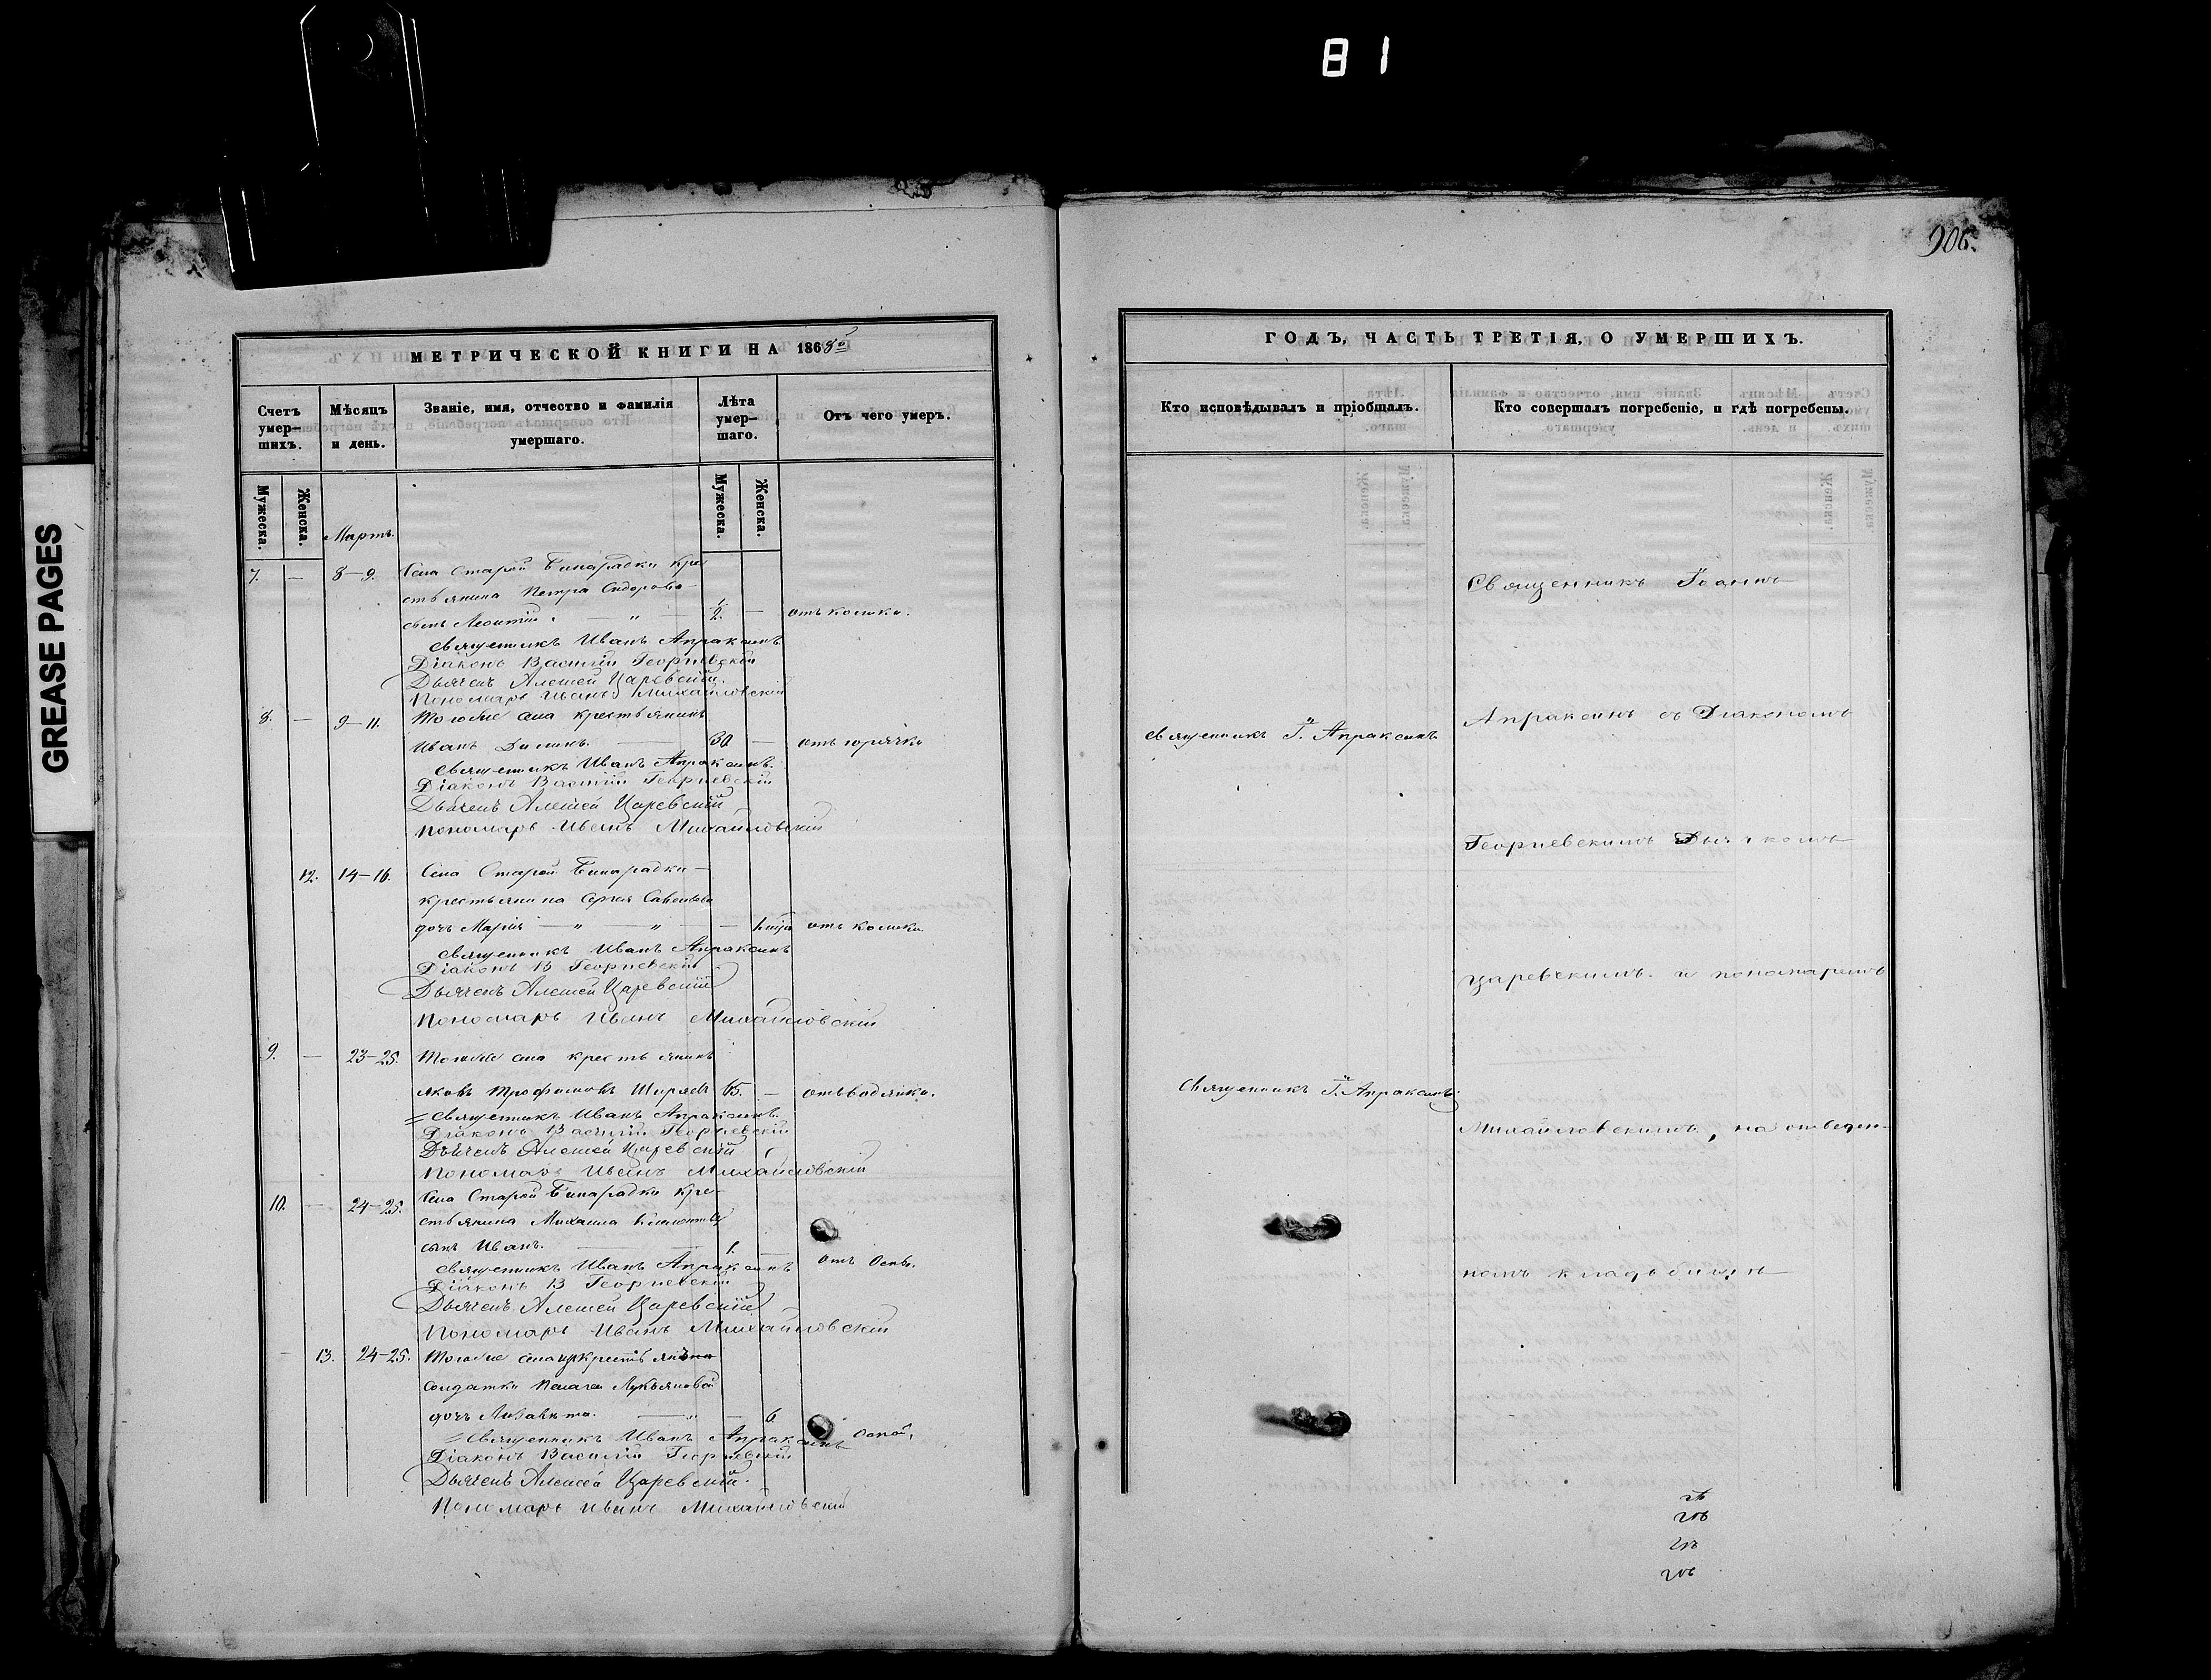 81
GREASE PAGES
906.
МЕТРИЧЕСКОЙ КНИГИ НА 1868го
Счетъ умер—шихъ.
Мѣсяцъ и день.
Званіе, имя, отчество и фамилія умершаго.
Лѣта умер—шаго.
Отъ чего умеръ.
Мужеска.
Женска.
Мужеска.
Женска.
Мартъ.
7. — 8—9. Села Старой Бинарадки кре
стьянина Петра Сидорова
сынъ Леонтій. — " — 1/2. — отъ колики.
Священникъ Иванъ Апраксинъ
Діаконъ Василій Георгіевскій
Дьячекъ Алексѣй Царевскій.
Пономарь Иванъ Михайловскій
8. — 9—11. Тогоже села крестьянинъ
Иванъ — 30 — отъ горячки
Священникъ Иванъ Апраксинъ.
Діаконъ Василій Георгіевскій
Дьячекъ Алексѣй Царевскій
Пономарь Иванъ Михайловскій
12. 14—16. Села Старой Бинарадки —
крестьянина Сергея Савельева
дочь Марія — " — " — — отъ колики.
Священникъ Иванъ Апраксинъ
Діаконъ В Георгіевскій
Дьячекъ Алексѣй Царевскій
Пономарь Иванъ Михайловскій
9. — 23—25. Тогоже села крестьянинъ
Яковъ Трофимовъ Ширяевъ 65. — отъ водянки.
Священникъ Иванъ Апраксинъ.
Діаконъ Василій Георгіевскій
Дьячекъ Алексѣй Царевскій
Пономарь Иванъ Михайловскій
10. — 24—25. Села Старой Бинарадки кре—
стьянина Михаила
сынъ Иванъ. — 1. — отъ Оспы.
Священникъ Иванъ Апраксинъ
Діаконъ В Георгіевскій
Дьячекъ Алексѣй Царевскій
Пономарь Иванъ Михайловскій
— 13. 24—25. Тогоже села
солдатки Пелагеи Лукьяновой
дочь Лизавета. — " — 6 Оспой.
Священникъ Иванъ Апраксинъ
Діаконъ Василій Георгіевскій
Дьячекъ Алексѣй Царевскій.
Пономарь Иванъ Михайловскій
ГОДЪ, ЧАСТЬ ТРЕТІЯ, О УМЕРШИХЪ.
Кто исповѣдывалъ и пріобщалъ.
Кто совершалъ погребеніе, и гдѣ погребены.
Священникъ Іоаннъ
Священникъ І. Апраксинъ
Апраксинъ съ Діакономъ
Георгіевскимъ Дьячкомъ
Царевскимъ. и пономаремъ
Священникъ І. Апраксинъ.
Михайловскимъ, на отведен—
номъ кладбищѣ